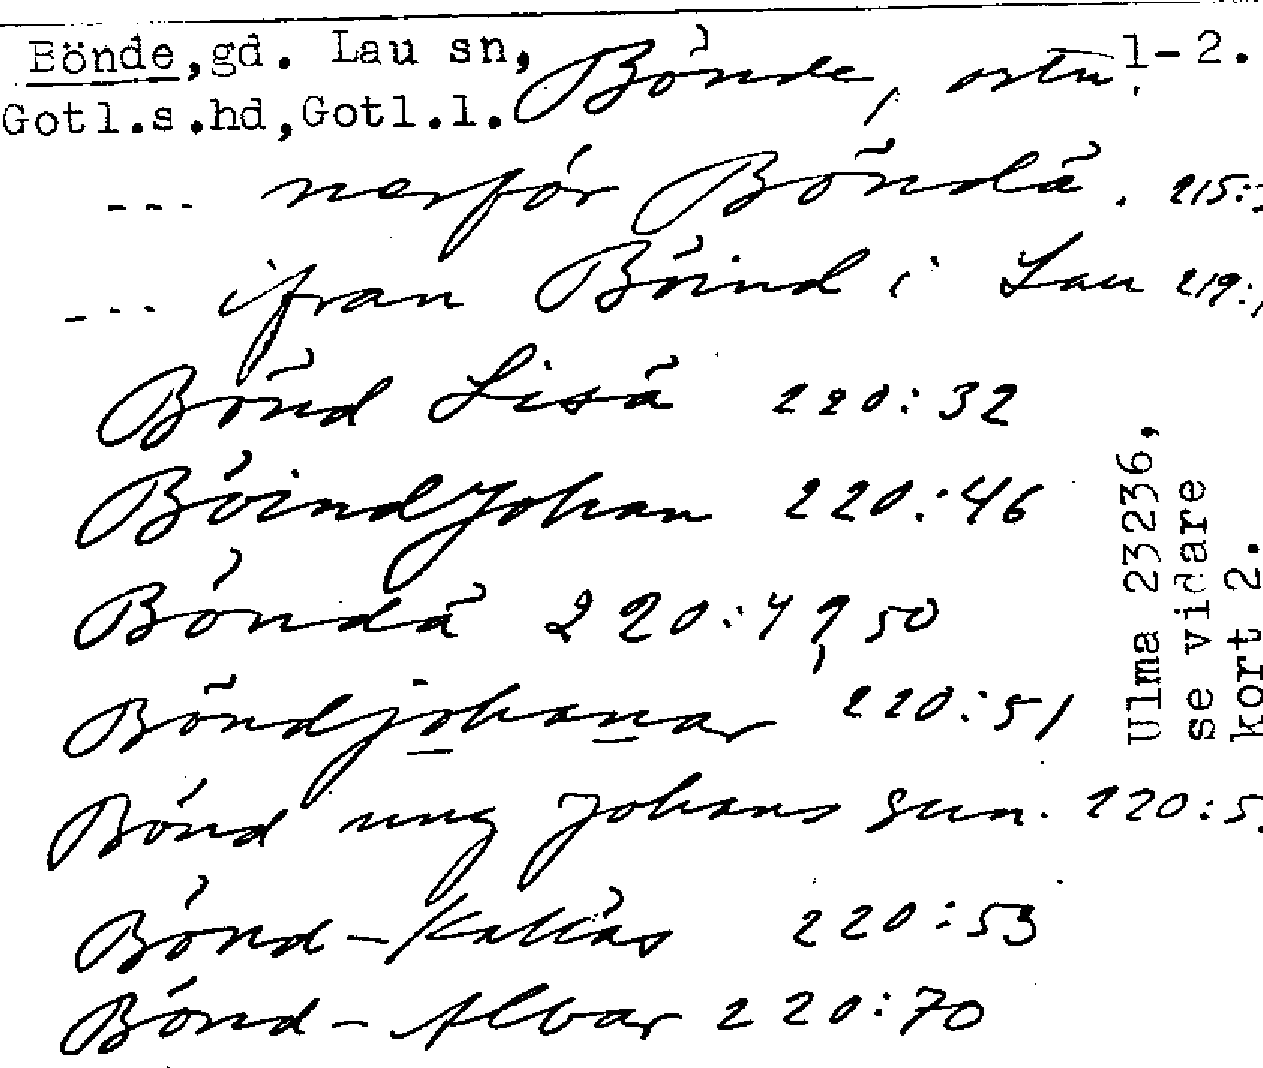 Bönde, gd. Lau sn,
Gotl.s.hd, Gotl.l.
Bönde, ortn. 1-2.
--- nerför Böndä. 215:
--- ifran Böind i Lau 219:
Bönd Lisä 220:32
Böind Johan 220:46
Böndä 220:49, 50
Böndjohanar 220:51
Bönd ung Johans sun. 220:5
Bönd-Kalläs 220:53
Bönd-Alvar 220:70
Ulma 23236,
se vidare
kort 2.